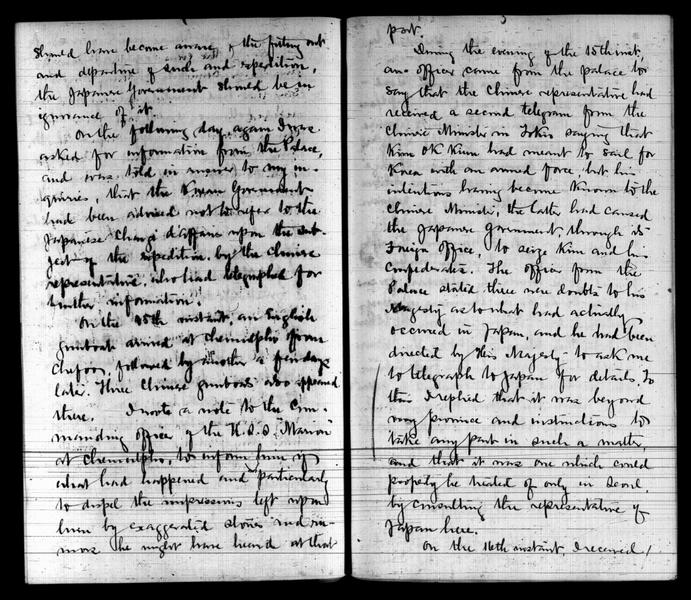 should have become aware of the fitting out
and departure of such and expedition,
the Japanese Government should be in
ignorance of it.
On the following day, again I was
asked for information from the Palace,
and was told in answer to my in-
quiries, that the Korean Government
had been advised not to refer to the
Japanese Chargé d'affaires upon the sub-
ject of the expedition by the Chinese
representative, who had telegraphed for
further information.
On the 15th instant, an English
gunboat arrived at Chemulpho from
Chefoo, followed by another a few days
later. Three Chinese gunboats also appeared
there. I wrote a note to the Com-
manding officer of the U.S.S. "Marion"
at Chemulpho, to inform him of
what had happened and particularly
to dispel the impressions left upon
him by exaggerated stories and ru-
mors he might have heard at that
3
port.
During the evening of the 15th inst,
an officer came from the palace to
say that the Chinese representative had
received a second telegram from the
Chinese Minister in Tokio saying that
Kim OK Kiun had meant to sail for
Korea with an armed force but his
intentions having become known to the
Chinese Minister, the latter had caused
the Japanese Government through its
Foreign Office, to seize Kim and his
Confederates. The officer from the
Palace stated there were doubts to his
Majesty as to what had actually
occurred in Japan, and he had been
directed by His Majesty to ask me
to telegraph to Japan for details. To
this I replied that it was beyond
my province and instructions to
take any part in such a matter,
and that it was one which could
properly be treated of only in Seoul,
by consulting the representative of
Japan here.
On the 16th instant, I received